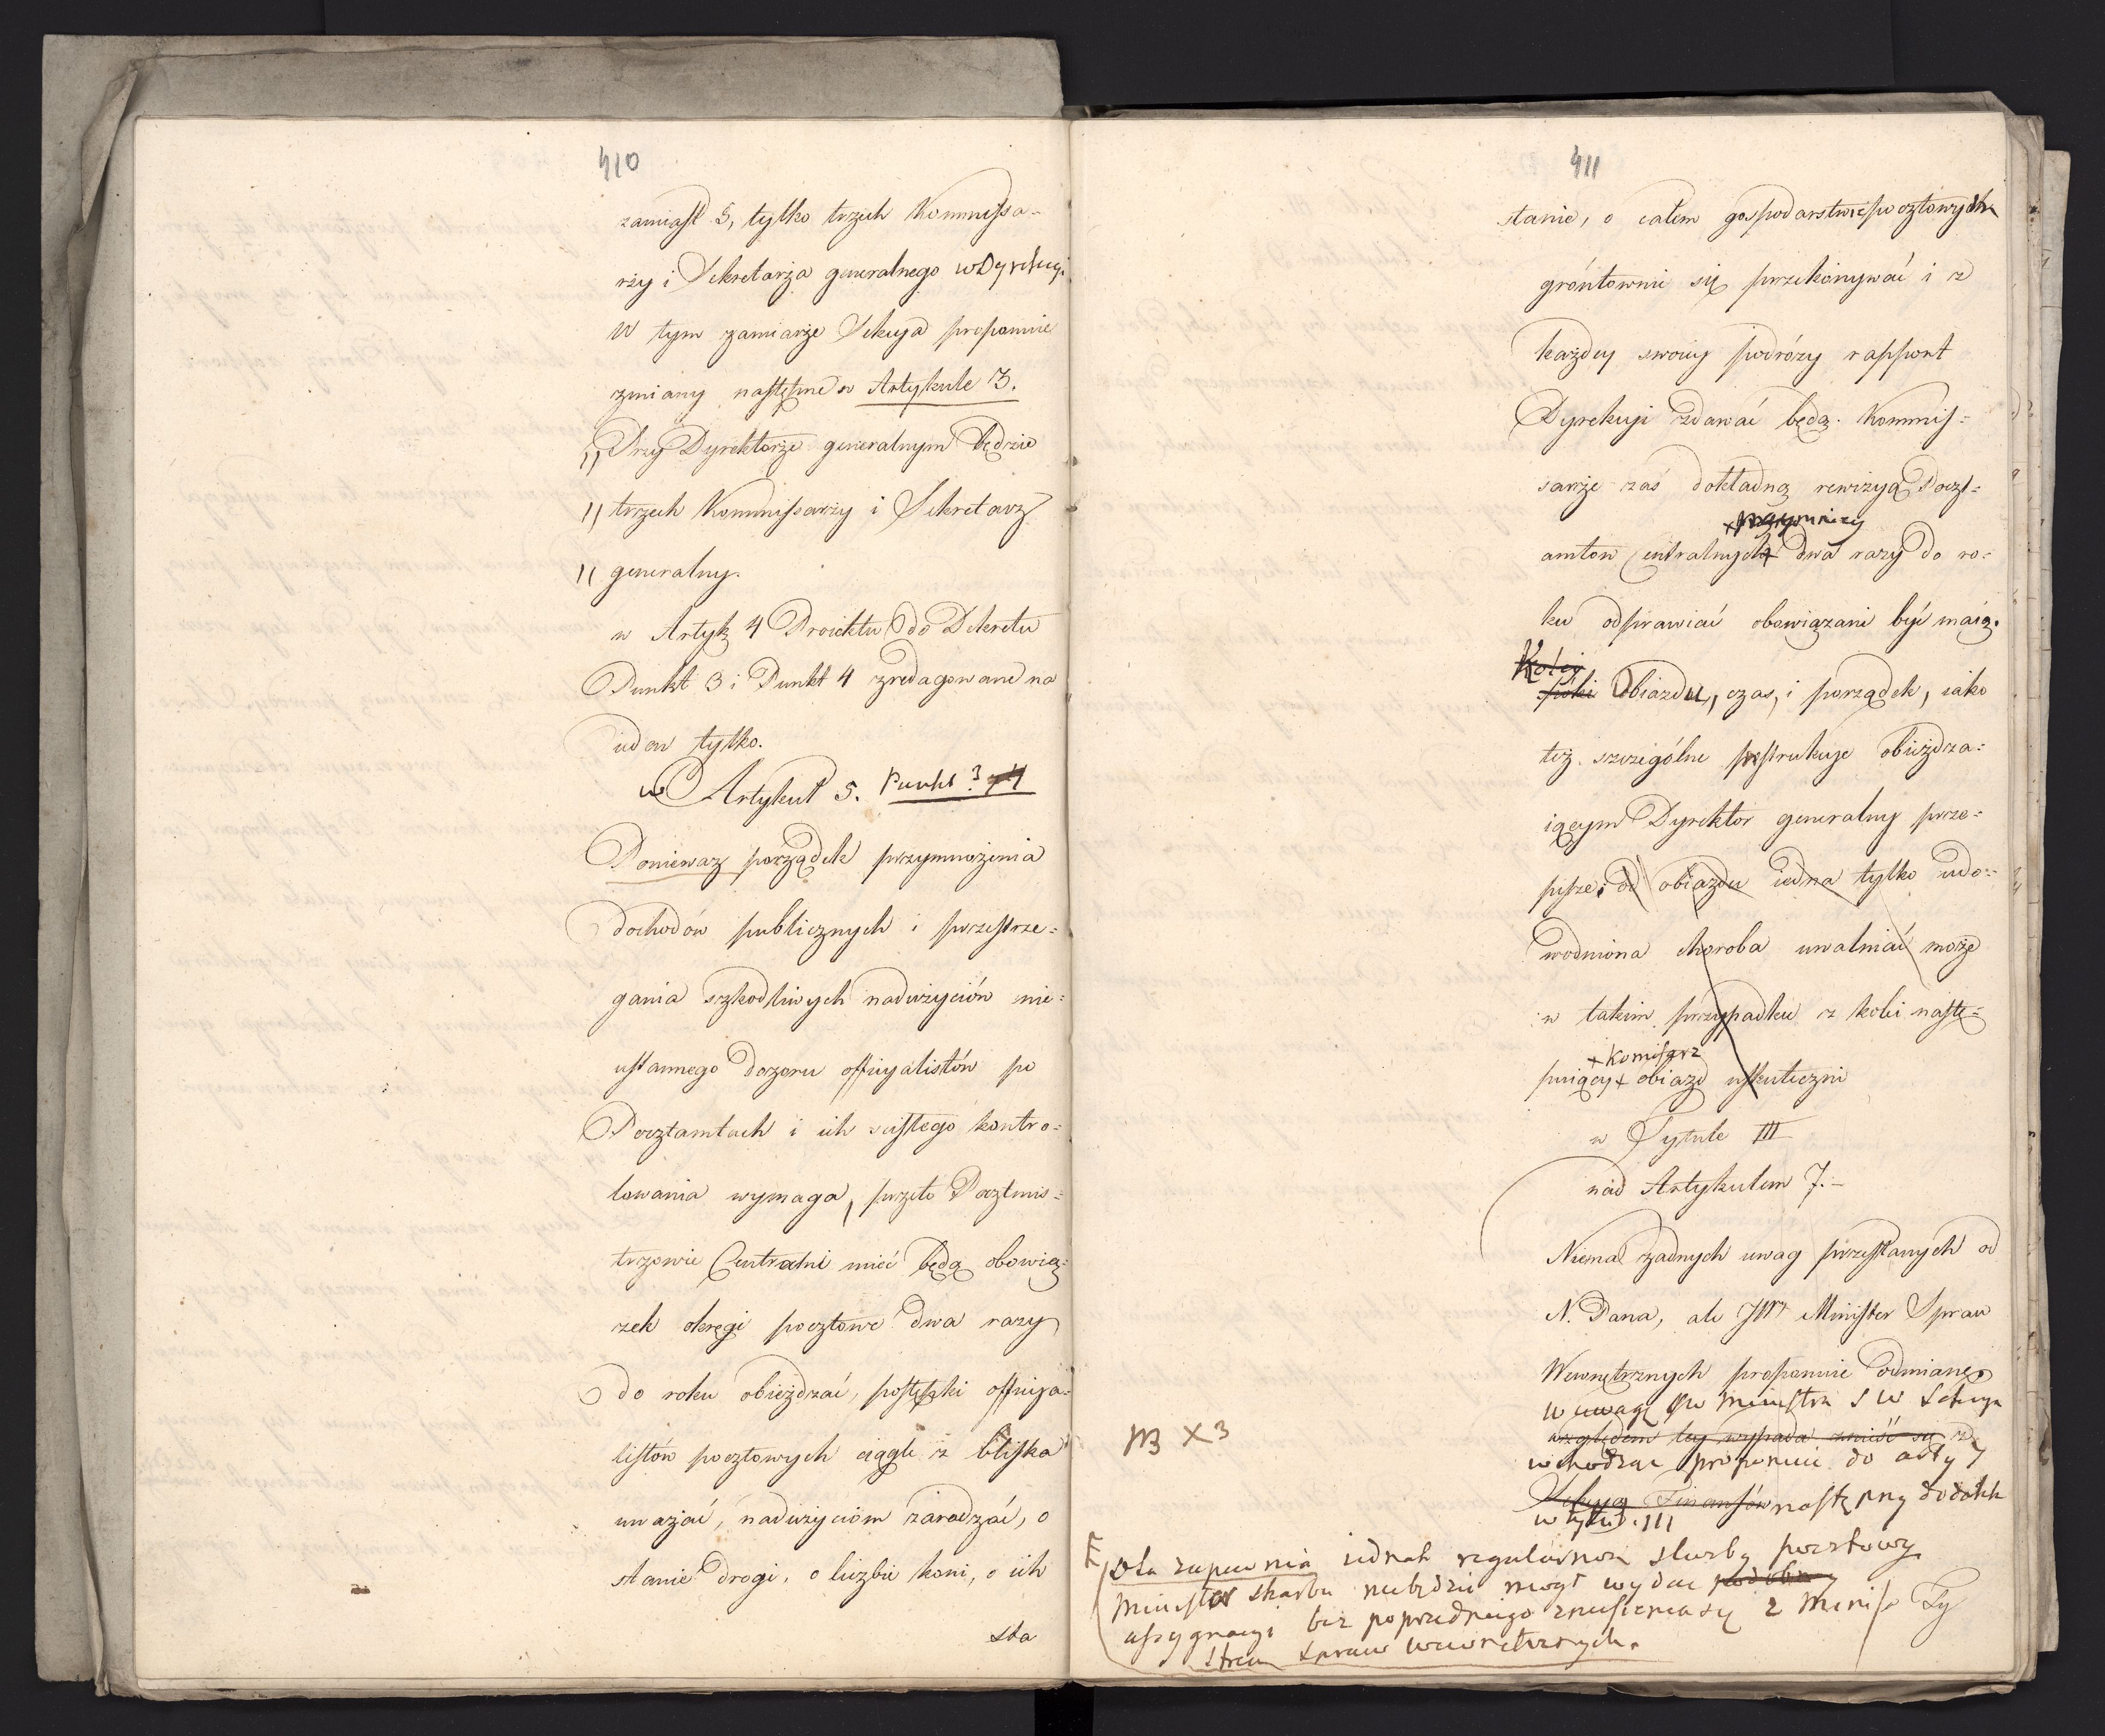 410
zamiast 5, tylko trzech Kommissa-
rzy i Sekretarza generalnego w Dyrekcyi
W tym zamiarze Sekcya proponuie
zmiany następne w Artykule 3.
„ Przy Dyrektorze generalnym będzie
„ trzech Kommissarzy i Sekretarz
„ generalny.
w Artyk 4 Proiektu do Dekretu
Punkt 3 i Punkt 4 zredagowane na
ieden tylko.
w Artykuł 5. Punkt 3 y 4
Ponieważ porządek przymnożenia
dochodów publicznych i przestrze-
gania szkodliwych nadużyciów nie-
ustannego dozoru officyalistów po
Pocztamtach i ich scisłego kontro-
lowania wymaga, przeto Pocztmis-
trzowie Centralni mieć będą obowią-
zek okręgi pocztowe dwa razy
do roku obieżdzać, postępki officya-
listów pocztowych ciągle z bliska
uważać, nadużyciom zaradzać, o
stanie drogi, o liczbie koni, o ich
sta
411
stanie, o całem gospodarstwie pocztowych
gróntownie się przekonywać i z
każdey swoiey podróży rapport
Dyrekcyi zdawać będą. Kommis-
sarze zaś dokładną rewizyą Poczt-
x przynmniey
amtow Centralnych x dwa razy do ro-
ku odprawiać obowiązani być maią.
Koley
Obiazdu, czas, i porządek, iako
też szczególne instrukcye obieżdza-
iącym Dyrektor generalny prze-
pisze. od obiazdu iedna tylko udo-
wodniona choroba uwalniać może
w takim przypadku z kolei nastę-
x Komisarz
puiący x obiazd uskuteczni
w Tytule III
nad Artykułem 7.-
Niema żadnych uwag przesłanych od
N. Pana, ale JW Minister Spraw
Wewnętrznych proponuie odmianę
w uwagę JW Ministra S W Sekcya
względem tey wypada znieść się z
wchodząc proponuie do arty 7
Sekcyą Finansów następny dodatek
w tytul. III
NB X 3
Dla zapewnia iednak regularnosci słuzby pocztowey
Minister skarbu niebędzie mogł wydac
assygnacyi bez poprzedniego zniesienia się z Mini-
strem spraw wewnetrznych.
Ty